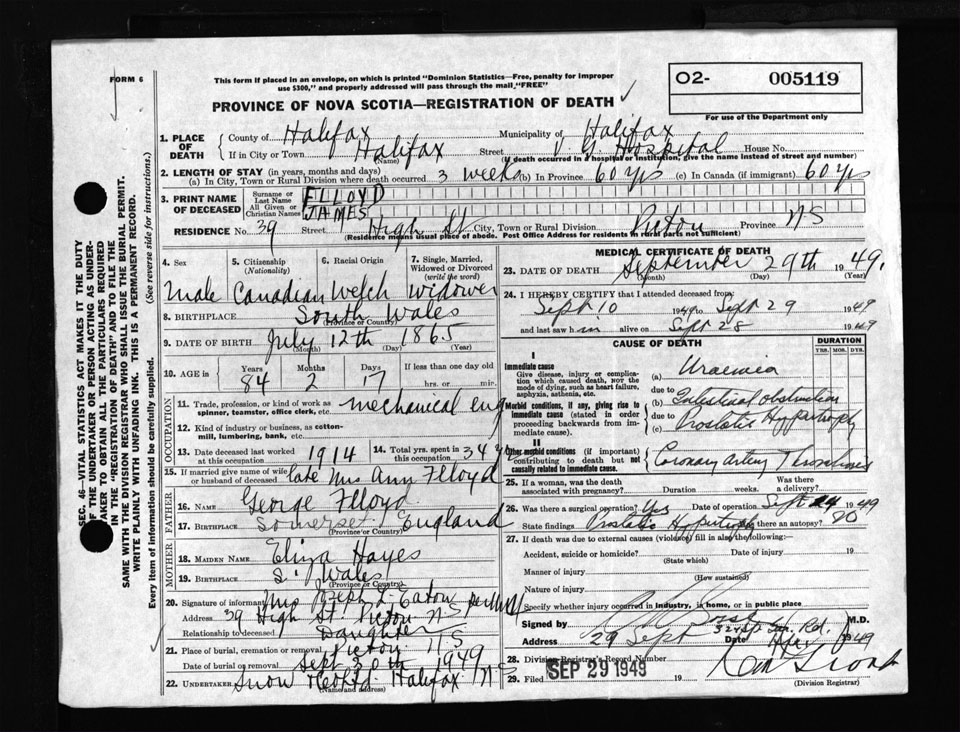 FORM 6
This form if placed in an envelope, on which is printed "Dominion Statistics—Free, penalty for improper
use $300," and properly addressed will pass through the mail, "FREE"
O2- 005119
For use of the Department only
PROVINCE OF NOVA SCOTIA—REGISTRATION OF DEATH
1. PLACE OF DEATH
County of Halifax Municipality of Halifax
If in City or Town Halifax Street V. G. Hospital House No.
(Name) (If death occurred in a hospital or institution, give the name instead of street and number)
2. LENGTH OF STAY (in years, months and days)
(a) In City, Town or Rural Division where death occurred 3 weeks (b) In Province 60 yrs (c) In Canada (if immigrant) 60 yrs
3. PRINT NAME OF DECEASED
Surname or Last Name FLLOYD
All Given or Christian Names JAMES
RESIDENCE No. 39 Street High St City, Town or Rural Division Pictou Province N S
(Residence means usual place of abode. Post Office Address for residents in rural parts not sufficient)
4. Sex
5. Citizenship (Nationality)
6. Racial Origin
7. Single, Married, Widowed or Divorced (write the word)
Male Canadian Welch Widower
8. BIRTHPLACE South Wales
(Province or Country)
9. DATE OF BIRTH July 12th 1865
(Month) (Day) (Year)
10. AGE in Years Months Days If less than one day old
84 2 17 hrs. or min.
OCCUPATION
11. Trade, profession, or kind of work as spinner, teamster, office clerk, etc. mechanical eng
12. Kind of industry or business, as cotton-mill, lumbering, bank, etc.
13. Date deceased last worked at this occupation 1914
14. Total yrs. spent in this occupation 34
15. If married give name of wife or husband of deceased late Mrs Ann Flloyd
FATHER
16. NAME George Flloyd
17. BIRTHPLACE Somerset England
(Province or Country)
MOTHER
18. MAIDEN NAME Eliza Hayes
19. BIRTHPLACE S. Wales
(Province or Country)
20. Signature of informant Mrs Joseph L. Eaton
Address 39 High St. Pictou N S
Relationship to deceased Daughter
21. Place of burial, cremation or removal Pictou N S
Date of burial or removal Sept 30th 1949
22. UNDERTAKER Snow & Co Ltd. Halifax N S
(Name and address)
MEDICAL CERTIFICATE OF DEATH
23. DATE OF DEATH September 29th 1949.
(Month) (Day) (Year)
24. I HEREBY CERTIFY that I attended deceased from:
Sept 10 1949 to Sept 29 1949
and last saw him alive on Sept 28 1949
CAUSE OF DEATH
DURATION
YRS. MOS. DYS.
I
Immediate cause
Give disease, injury or complication which caused death, NOT the mode of dying, such as heart failure, asphyxia, asthenia, etc.
(a) Uraemia
due to
Morbid conditions, if any, giving rise to immediate cause (stated in order proceeding backwards from immediate cause).
(b) Intestinal obstruction
due to
(c) Prostatic Hypertrophy
II
Other morbid conditions (if important) contributing to death but not causally related to immediate cause.
Coronary artery Thrombosis
25. If a woman, was the death associated with pregnancy? Duration weeks. Was there a delivery?
26. Was there a surgical operation? Yes Date of operation Sept 24 1949
State findings Prostatic Hypertrophy Was there an autopsy? no
27. If death was due to external causes (violence) fill in also the following:
Accident, suicide or homicide? Date of injury 19
(State which)
Manner of injury
(How sustained)
Nature of injury
Specify whether injury occurred in industry, in home, or in public place
Signed by M.D.
Address Date 29 Sept 1949
28. Division Registrar's Record Number
29. Filed SEP 29 1949 19
(Division Registrar)
SEC. 46—VITAL STATISTICS ACT MAKES IT THE DUTY
OF THE UNDERTAKER OR PERSON ACTING AS UNDERTAKER
TO OBTAIN ALL THE PARTICULARS REQUIRED
IN THE "REGISTRATION OF DEATH" AND TO FILE THE
SAME WITH THE DIVISION REGISTRAR WHO SHALL ISSUE THE BURIAL PERMIT.
WRITE PLAINLY WITH UNFADING INK. THIS IS A PERMANENT RECORD.
Every item of information should be carefully supplied. (See reverse side for instructions.)